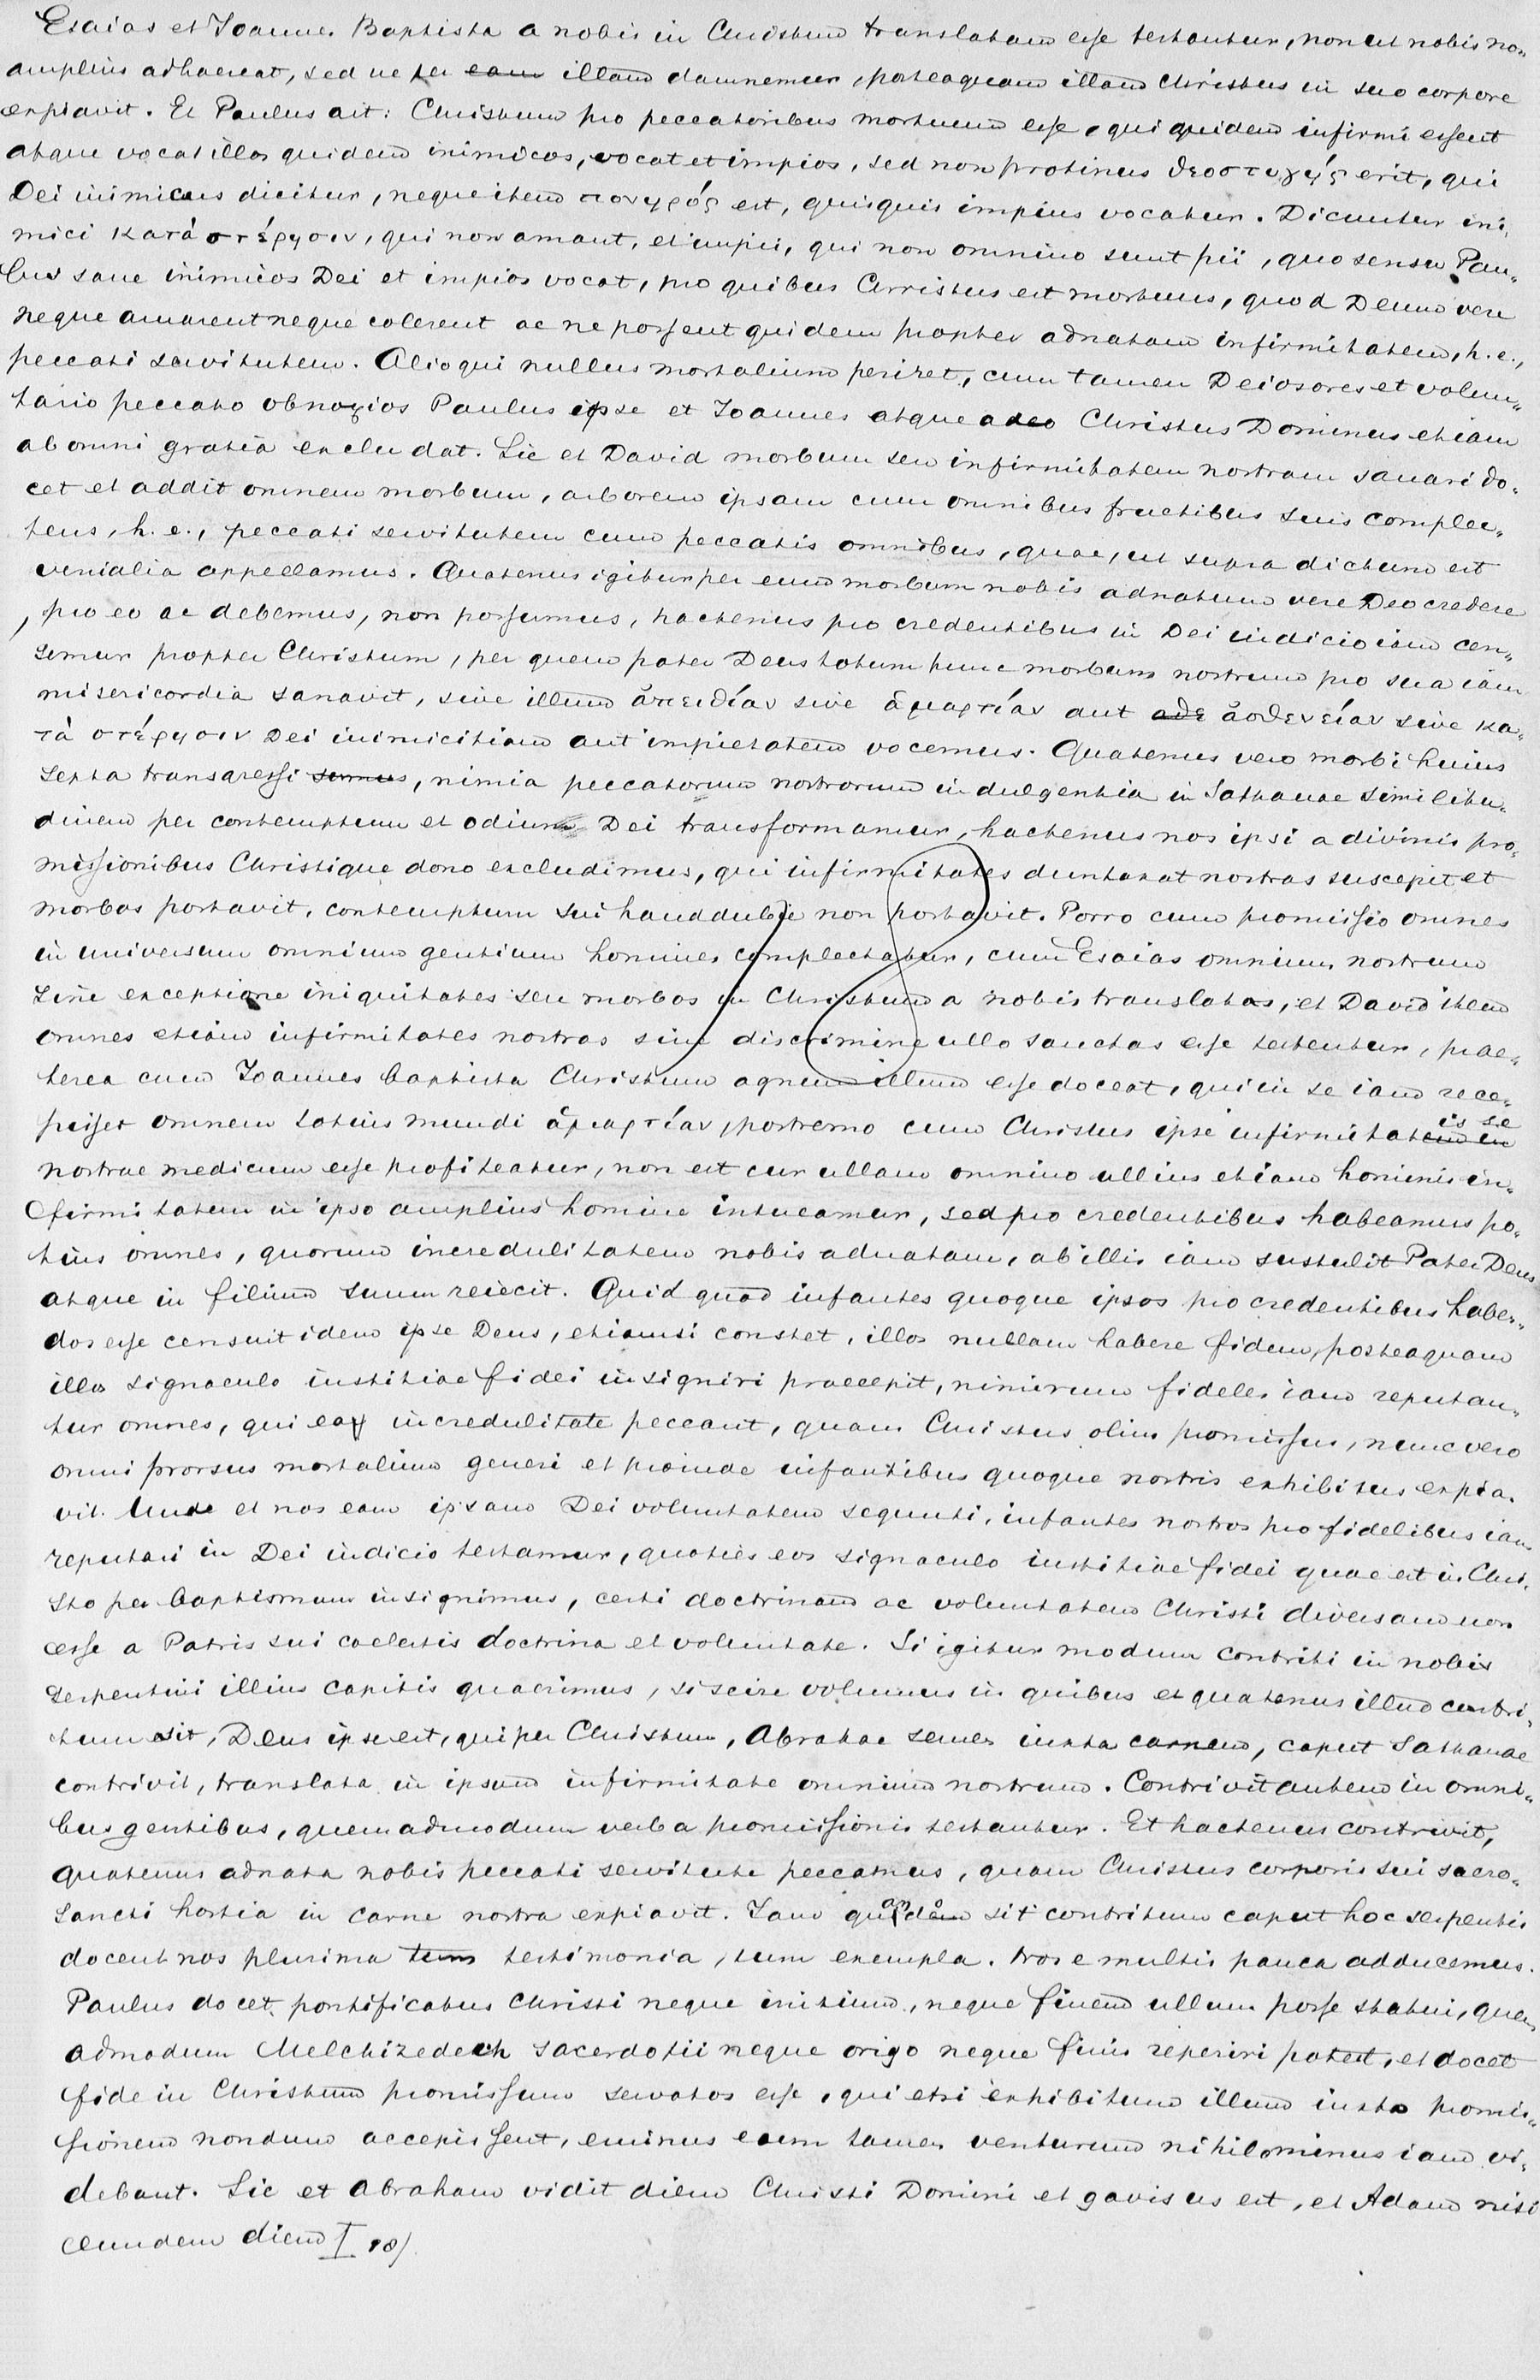 Esaias et Joannes Baptista a nobis in Christum translatam esse testantur, non ut nobis non
amplius adhaereat, sed ne per eam illam damnemur, posteaquam illam Christus in suo corpore
expiavit. Et Paulus ait: Christum pro peccatoribus mortuum esse, qui quidem infirmi essent
atque vocat illos quidem inimicos, vocat et impios, sed non protinus θεοστυγής erit, qui
Dei inimicus dicitur, neque item πονηρός est, quisquis impius vocatur. Dicuntur ini„
mici κατὰ στέρησιν, qui non amant, et impii, qui non omnino sunt pii, quo sensu Pau„
lus sane inimicos Dei et impios vocat, pro quibus Christus est mortuus, quod Deum vere
neque amarent neque colerent ac ne possent quidem propter adnatam infirmitatem, h. e.,
peccati servitutem. Alioqui nullus mortalium periret, cum tamen Dei osores et volun„
tario peccato obnoxios Paulus ipse et Joannes atque adeo Christus Dominus etiam
ab omni gratia excludat. Sic et David morbum seu infirmitatem nostram sanari do„
cet et addit omnem morbum, arborem ipsam cum omnibus fructibus suis complec„
tens, h. e., peccati servitutem cum peccatis omnibus, quae, ut supra dictum est
venialia appellamus. Quatenus igitur per eum morbum nobis adnatum vere Deo credere
, pro eo ac debemus, non possumus, hactenus pro credentibus in Dei iudicio iam cen„
semur propter Christum, per quem pater Deus totum hunc morbum nostrum pro sua iam
misericordia sanavit, sive illum ἀπειθίαν sive ἁμαρτίαν aut ade ἀσθενείαν sive κα„
τὰ στέρησιν Dei inimicitiam aut impietatem vocemus. Quatenus vero morbi huius
septa transgressi sumus, nimia peccatorum nostrorum indulgentia in Sathanae similitu„
dinem per contemptum et odium Dei transformamur, hactenus nos ipsi a divinis pro„
missionibus Christique dono excludimus, qui infirmitates duntaxat nostras suscepit et
morbos portavit, contemptum sui haud dubie non portavit. Porro cum promissio omnes
in universum omnium gentium homines complectatur, cum Esaias omnium nostrum
sine exceptione iniquitates seu morbos in Christum a nobis translatas, et David item
omnes etiam infirmitates nostras sine discrimine ullo sanctas esse testentur, prae„
terea cum Joannes Baptista Christum agnum illum esse doceat, qui in se iam rece„
pisset omnem totius mundi ἁμαρτίαν, postremo cum Christus ipse infirmitatem in is se
nostrae medicum esse profiteatur, non est cur ullam omnino ullius etiam hominis in„
firmitatem in ipso amplius homine intueamur, sed pro credentibus habeamus po„
tius omnes, quorum incredulitatem nobis adnatam, ab illis iam sustulit Pater Deus
atque in filium suum reiecit. Quid quod infantes quoque ipsos pro credentibus haben„
dos esse censuit idem ipse Deus, etiamsi constet, illos nullam habere fidem, posteaquam
illos signaculo iustitiae fidei insigniri praecepit, nimirum fideles iam reputan„
tur omnes, qui ea incredulitate peccant, quam Christus olim promissus, nunc vero
omni prorsus mortalium generi et proinde infantibus quoque nostris exhibitus expia„
vit. Unde et nos eam ipsam Dei voluntatem sequuti, infantes nostros pro fidelibus iam
reputari in Dei iudicio testamur, quoties eos signaculo iustitiae fidei quae est in Chri„
sto per baptismum insignimus, certi doctrinam ac voluntatem Christi diversam non
esse a Patris sui caelestis doctrina et voluntate. Si igitur modum contriti in nobis
serpentini illius capitis quaerimus, si scire volumus in quibus et quatenus illud contri„
tum sit, Deus ipse est, qui per Christum, Abrahae semen iuxta carnem, caput Sathanae
contrivit, translata in ipsum infirmitate omnium nostrum. Contrivit autem in omni„
bus gentibus, quemadmodum verba promissionis testantur. Et hactenus contrivit,
quatenus adnata nobis peccati servitute peccamus, quam Christus corporis sui sacro„
sancti hostia in carne nostra expiavit. Iam quando sit contritum caput hoc serpentis
docent nos plurima tum testimonia, tum exempla. Nos e multis pauca adducemus.
Paulus docet pontificatus Christi neque initium, neque finem ullum posse statui, quem
admodum Melchizedech sacerdotii neque origo neque finis reperiri potest, et docet
fide in Christum promissum servatos esse, qui etsi exhibitum illum iuxta promis„
sionem nondum accepissent, eminus eum tamen venturum nihilominus iam vi„
debant. Sic et Abraham vidit diem Christi Domini et gavisus est, et Adam nisi
eundem diem I 18)